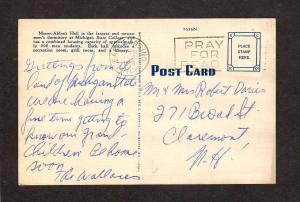 Mason-Abbott Hall is the largest and newest
men's dormitory at Michigan State College. It
has a combined housing capacity of approximate-
ly 900 men students. Each hall includes a
recreation room, grill room, and a library.
Greetings from the
land of Michigan State
we are having a
fine time getting to
know our grand-
children Be home
soon
The Wallaces
PRAY
FOR
POST CARD
PLACE
STAMP
HERE
Mr & Mrs Robert Davis
271 Broad St
Claremont
N.H.